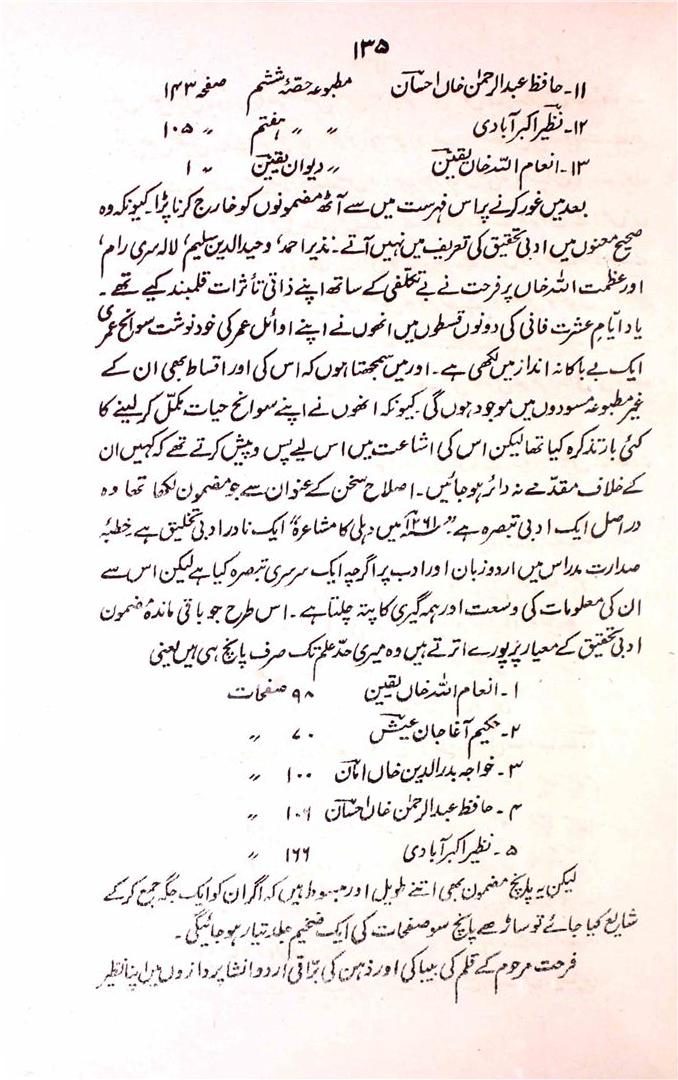 ۱۳۵
۱۱۔ حافظ عبدالرحمٰن خاں احسان مطبوعہ حصّۂ ششم صفحہ ۱۴۳
۱۲۔ نظیر اکبرآبادی 〃 〃 ہفتم 〃 ۱۰۵
۱۳۔ انعام اللہ خاں یقین 〃 دیوان یقین 〃 ۱
بعد میں غور کرنے پر اس فہرست میں سے آٹھ مضمونوں کو خارج کرنا پڑا۔ کیونکہ وہ
صحیح معنوں میں ادبی تحقیق کی تعریف میں نہیں آتے۔ نذیر احمد، وحید الدین سلیم، لالہ سری رام،
اور عظمت اللہ خاں پر فرحت نے بے تکلّفی کے ساتھ اپنے ذاتی تأثرات قلمبند کیے تھے۔
یاد ایّامِ عشرت فانی کی دونوں قسطوں میں انھوں نے اپنے اوائل عمر کی خود نوشت سوانح عمری
ایک بے باکانہ انداز میں لکھی ہے۔ اور میں سمجھتا ہوں کہ اس کی اور اقساط بھی ان کے
غیر مطبوعہ مسودوں میں موجود ہوں گی۔ کیونکہ انھوں نے اپنے سوانح حیات مکمّل کر لینے کا
کئی بار تذکرہ کیا تھا لیکن اس کی اشاعت میں اس لیے پس و پیش کرتے تھے کہ کہیں ان
کے خلاف مقدّمے نہ دائر ہو جائیں۔ اصلاح سخن کے عنوان سے جو مضمون لکھا تھا وہ
دراصل ایک ادبی تبصرہ ہے۔ "۱۲۶۱ھ میں دہلی کا مشاعرہ" ایک نادر ادبی تخلیق ہے۔ خطبۂ
صدارت مدراس میں اردو زبان اور ادب پر اگرچہ ایک سرسری تبصرہ کیا ہے لیکن اس سے
ان کی معلومات کی وسعت اور ہمہ گیری کا پتہ چلتا ہے۔ اس طرح جو باقی ماندہ مضمون
ادبی تحقیق کے معیار پر پورے اترتے ہیں وہ میری حدّ علم تک صرف پانچ ہی ہیں یعنی
۱۔ انعام اللہ خاں یقین ۹۸ صفحات
۲۔ حکیم آغا جان عیش ۷۰ 〃
۳۔ خواجہ بدرالدین خاں امان ۱۰۰ 〃
۴۔ حافظ عبدالرحمٰن خاں احسان ۱۰۶ 〃
۵۔ نظیر اکبرآبادی ۱۶۶ 〃
لیکن یہ پانچ مضمون بھی اتنے طویل اور مبسوط ہیں کہ اگر ان کو ایک جگہ جمع کر کے
شایع کیا جائے تو ساڑھے پانچ سو صفحات کی ایک ضخیم جلد تیار ہو جائیگی۔
فرحت مرحوم کے قلم کی بیباکی اور ذہن کی برّاقی اُردو انشا پردازوں میں اپنا نظیر